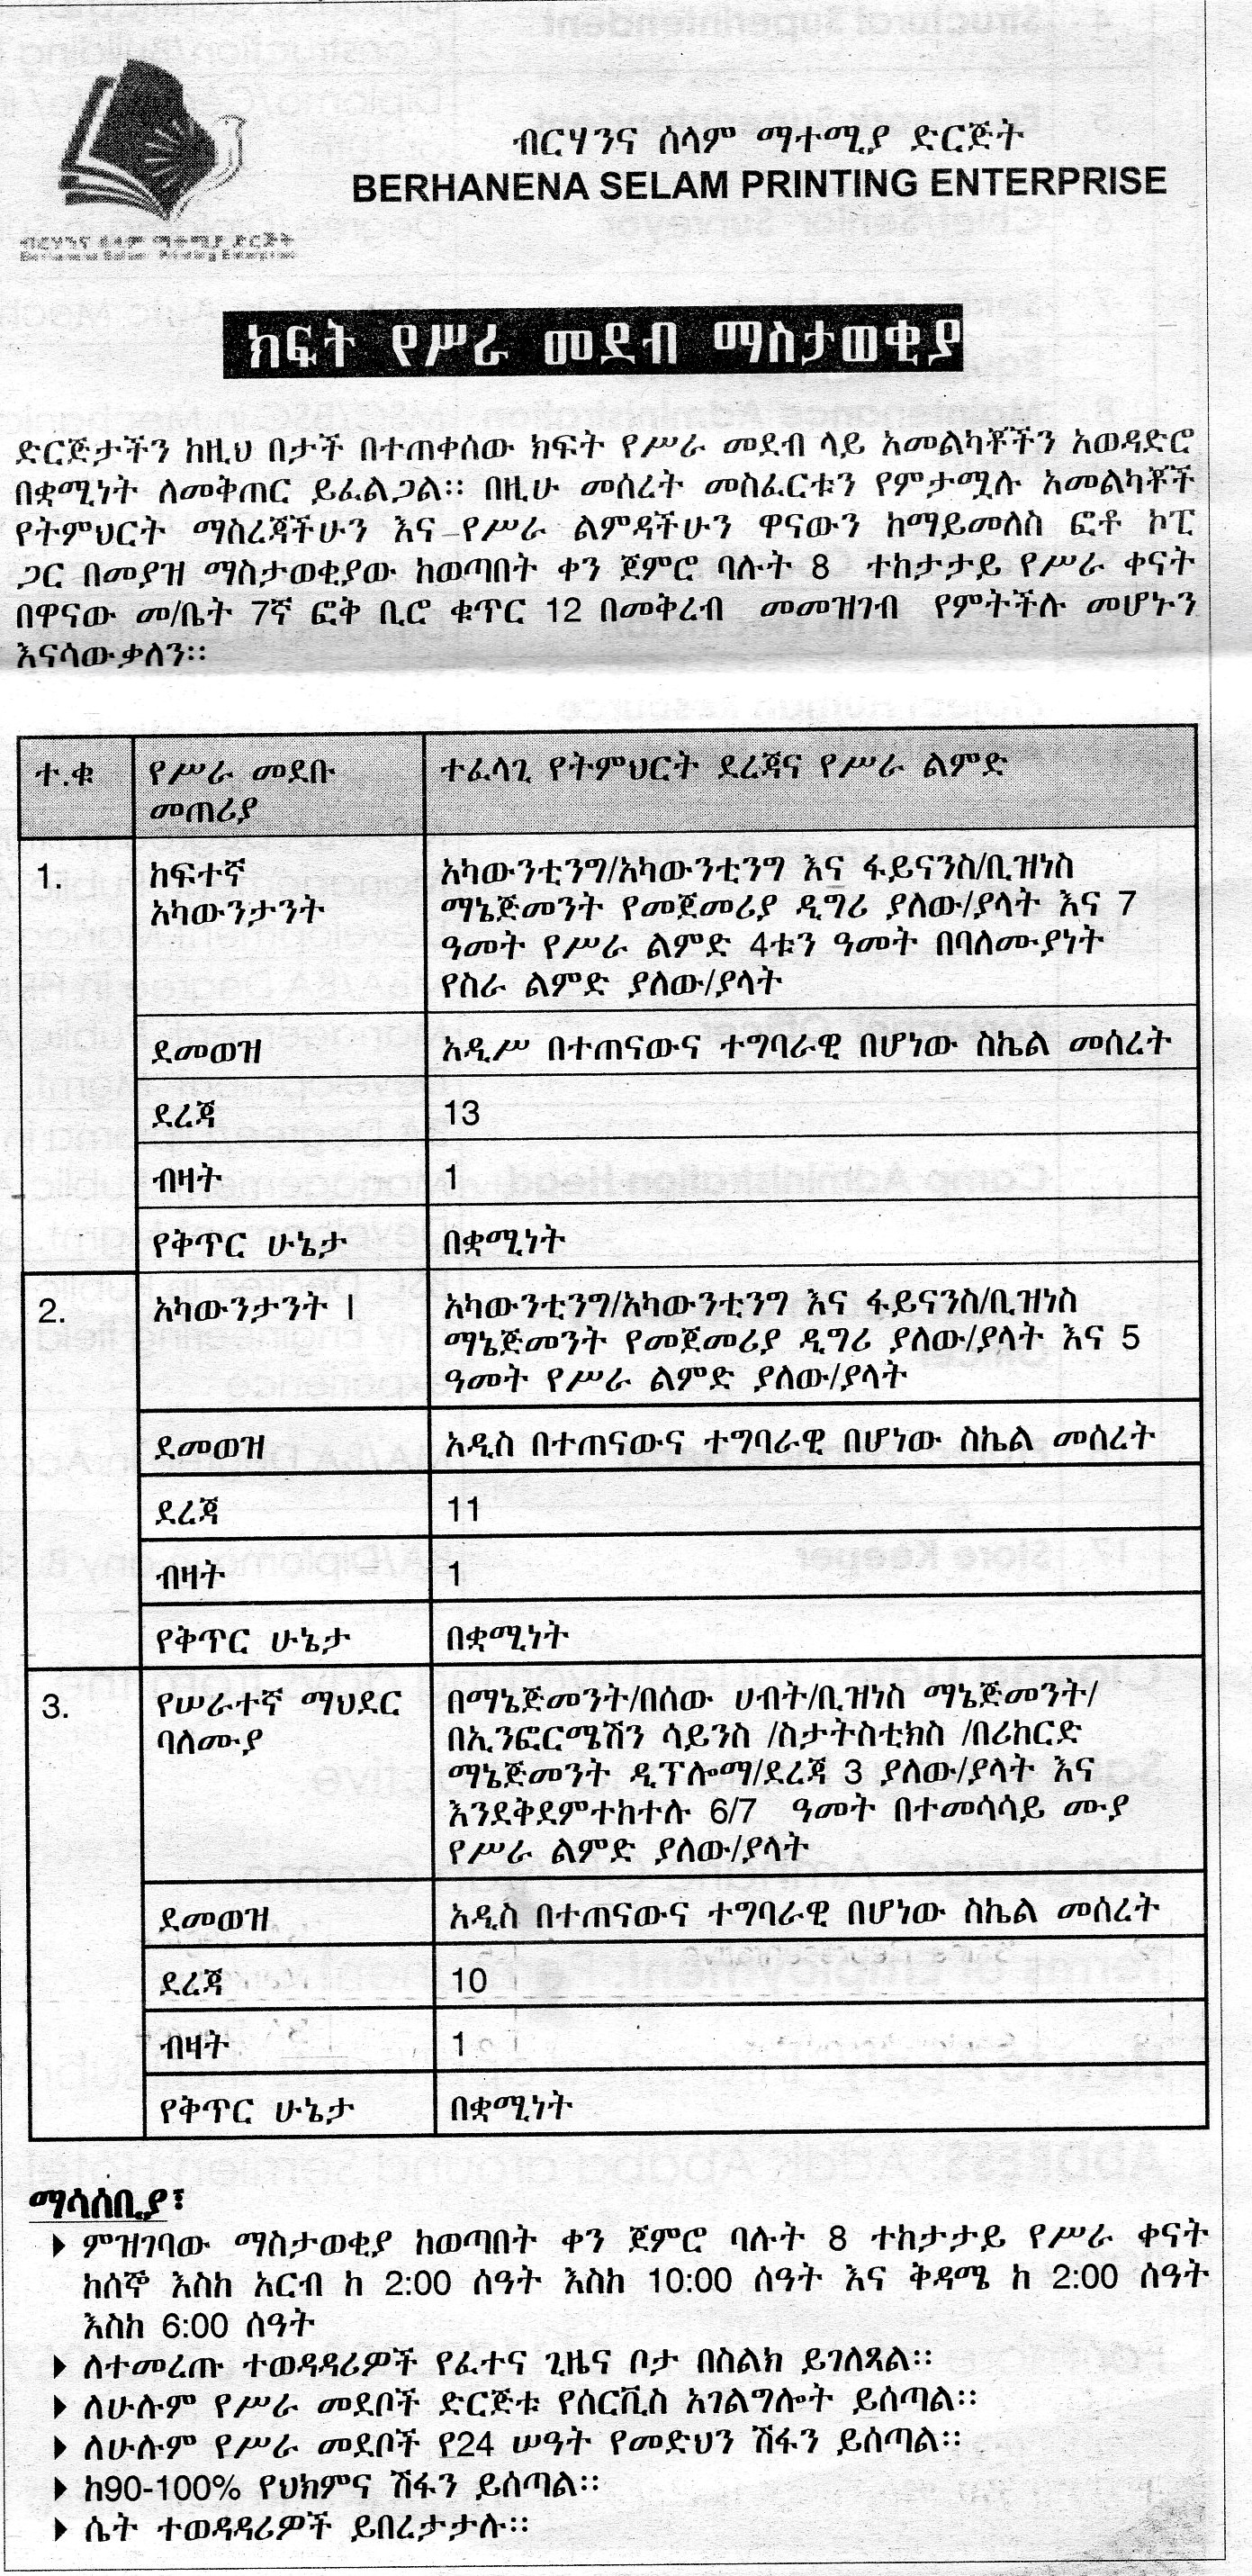 ብርሃንና ሰላም ማተሚያ ድርጅት
BERHANENA SELAM PRINTING ENTERPRISE
ብርሃንና ሰላም ማተሚያ ድርጅት
ክፍት የሥራ መደብ ማስታወቂያ
ድርጅታችን ከዚህ በታች በተጠቀሰው ክፍት የሥራ መደብ ላይ አመልካቾችን አወዳድሮ
በቋሚነት ለመቅጠር ይፈልጋል፡፡ በዚሁ መሰረት መስፈርቱን የምታሟሉ አመልካቾች
የትምህርት ማስረጃችሁን እና የሥራ ልምዳችሁን ዋናውን ከማይመለስ ፎቶ ኮፒ
ጋር በመያዝ ማስታወቂያው ከወጣበት ቀን ጀምሮ ባሉት 8 ተከታታይ የሥራ ቀናት
በዋናው መ/ቤት 7ኛ ፎቅ ቢሮ ቁጥር 12 በመቅረብ መመዝገብ የምትችሉ መሆኑን
እናሳውቃለን፡፡
ተ.ቁ
የሥራ መደቡ
መጠሪያ
ተፈላጊ የትምህርት ደረጃና የሥራ ልምድ
1.
ከፍተኛ
አካውንታንት
አካውንቲንግ/አካውንቲንግ እና ፋይናንስ/ቢዝነስ
ማኔጅመንት የመጀመሪያ ዲግሪ ያለው/ያላት እና 7
ዓመት የሥራ ልምድ 4ቱን ዓመት በባለሙያነት
የስራ ልምድ ያለው/ያላት
ደመወዝ
አዲሥ በተጠናውና ተግባራዊ በሆነው ስኬል መሰረት
ደረጃ
13
ብዛት
1
የቅጥር ሁኔታ
በቋሚነት
2.
አካውንታንት I
አካውንቲንግ/አካውንቲንግ እና ፋይናንስ/ቢዝነስ
ማኔጅመንት የመጀመሪያ ዲግሪ ያለው/ያላት እና 5
ዓመት የሥራ ልምድ ያለው/ያላት
ደመወዝ
አዲስ በተጠናውና ተግባራዊ በሆነው ስኬል መሰረት
ደረጃ
11
ብዛት
1
የቅጥር ሁኔታ
በቋሚነት
3.
የሠራተኛ ማህደር
ባለሙያ
በማኔጅመንት/በሰው ሀብት/ቢዝነስ ማኔጅመንት/
በኢንፎርሜሽን ሳይንስ /ስታትስቲክስ /በሪከርድ
ማኔጅመንት ዲፕሎማ/ደረጃ 3 ያለው/ያላት እና
እንደቅደምተከተሉ 6/7 ዓመት በተመሳሳይ ሙያ
የሥራ ልምድ ያለው/ያላት
ደመወዝ
አዲስ በተጠናውና ተግባራዊ በሆነው ስኬል መሰረት
ደረጃ
10
ብዛት
1
የቅጥር ሁኔታ
በቋሚነት
ማሳሰቢያ፣
ምዝገባው ማስታወቂያ ከወጣበት ቀን ጀምሮ ባሉት 8 ተከታታይ የሥራ ቀናት
ከሰኞ እስከ አርብ ከ 2:00 ሰዓት እስከ 10:00 ሰዓት እና ቅዳሜ ከ 2:00 ሰዓት
እስከ 6:00 ሰዓት
ለተመረጡ ተወዳዳሪዎች የፈተና ጊዜና ቦታ በስልክ ይገለጻል፡፡
ለሁሉም የሥራ መደቦች ድርጅቱ የሰርቪስ አገልግሎት ይሰጣል፡፡
ለሁሉም የሥራ መደቦች የ24 ሠዓት የመድህን ሽፋን ይሰጣል፡፡
ከ90-100% የህክምና ሽፋን ይሰጣል፡፡
ሴት ተወዳዳሪዎች ይበረታታሉ፡፡